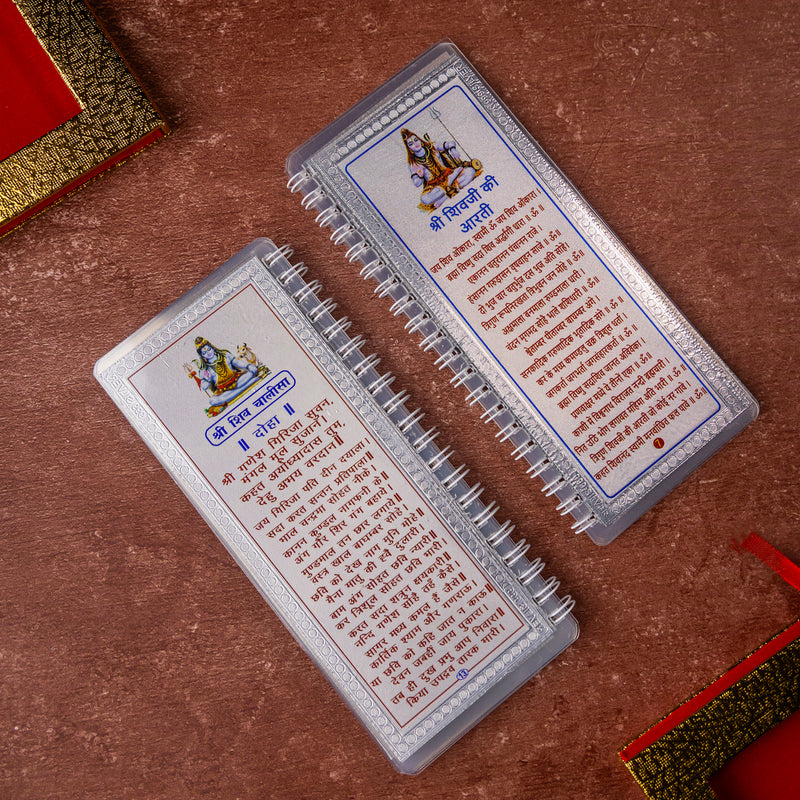 श्री शिव चालीसा
॥ दोहा ॥
श्री गणेश गिरिजा सुवन,
मंगल मूल सुजान।
कहत अयोध्यादास तुम,
देहु अभय वरदान॥
जय गिरिजा पति दीन दयाला।
सदा करत सन्तन प्रतिपाला॥
भाल चन्द्रमा सोहत नीके।
कानन कुण्डल नागफनी के॥
अंग गौर शिर गंग बहाये।
मुण्डमाल तन छार लगाये॥
वस्त्र खाल बाघम्बर सोहे।
छवि को देख नाग मुनि मोहे॥
मैना मातु की हवै दुलारी।
बाम अंग सोहत छवि न्यारी॥
कर त्रिशूल सोहत छवि भारी।
करत सदा शत्रुन क्षयकारी॥
नन्दि गणेश सोहै तहँ कैसे।
सागर मध्य कमल हैं जैसे॥
कार्तिक श्याम और गणराऊ।
या छवि को कहि जात न काऊ॥
देवन जबहीं जाय पुकारा।
तब ही दुख प्रभु आप निवारा॥
किया उपद्रव तारक भारी।
13
श्री शिवजी की
आरती
जय शिव ओंकारा, स्वामी ॐ जय शिव ओंकारा।
ब्रह्मा विष्णु सदा शिव अर्द्धांगी धारा॥ ॐ॥
एकानन चतुरानन पंचानन राजे।
हंसानन गरुड़ासन वृषवाहन साजे॥ ॐ॥
दो भुज चार चतुर्भुज दस भुज अति सोहे।
त्रिगुण रूपनिरखता त्रिभुवन जन मोहे॥ ॐ॥
अक्षमाला बनमाला रुण्डमाला धारी।
चंदन मृगमद सोहे भाले शशिधारी॥ ॐ॥
श्वेताम्बर पीताम्बर बाघम्बर अंगे।
सनकादिक गरुणादिक भूतादिक संगे॥ ॐ॥
कर के मध्य कमण्डलु चक्र त्रिशूल धर्ता।
जगकर्ता जगभर्ता जगसंहारकर्ता॥ ॐ॥
ब्रह्मा विष्णु सदाशिव जानत अविवेका।
प्रणवाक्षर मध्ये ये तीनों एका॥ ॐ॥
काशी में विश्वनाथ विराजत नन्दी ब्रह्मचारी।
नित उठि भोग लगावत महिमा अति भारी॥ ॐ॥
त्रिगुण शिवजी की आरती जो कोई नर गावे।
कहत शिवानन्द स्वामी मनवांछित फल पावे॥ ॐ॥